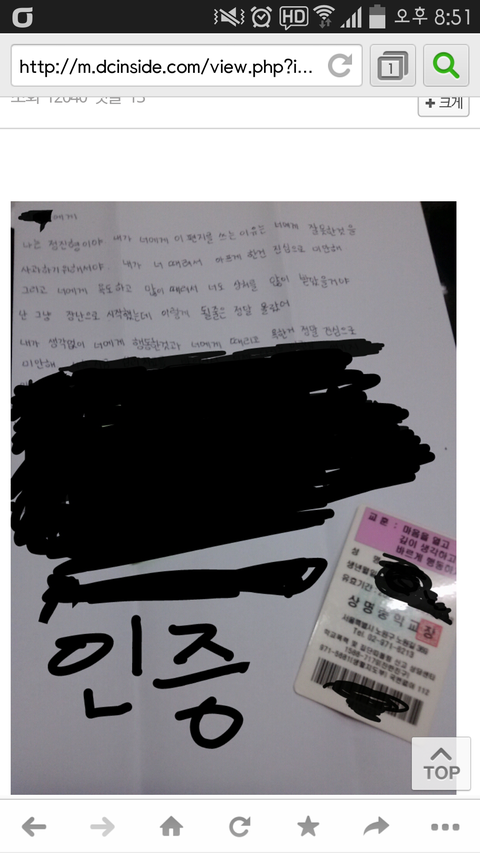 HD
오후 8:51
http://m.dcinside.com/view.php?i...
1
조회 12040 댓글 15
+ 크게
에게
나는 정진형이야 내가 너에게 이 편지를 쓰는 이유는 너에게 잘못한것을
사과하기위해서야. 내가 너 때려서 아프게 한건 진심으로 미안해
그리고 너에게 욕도하고 많이 때려서 너도 상처를 많이 받았을거야
난 그냥 장난으로 시작했는데 이렇게 될줄은 정말 몰랐어
내가 생각없이 너에게 행동한것과 너에게 때리고 욕한거 정말 진심으로
미안해
인증
교훈 : 마음을 열고
깊이 생각하고
바르게 행동하
성 명
생년월일
유효기간
상명중학교장
서울특별시 노원구 노원길
Tel. 02-971-6213
TOP